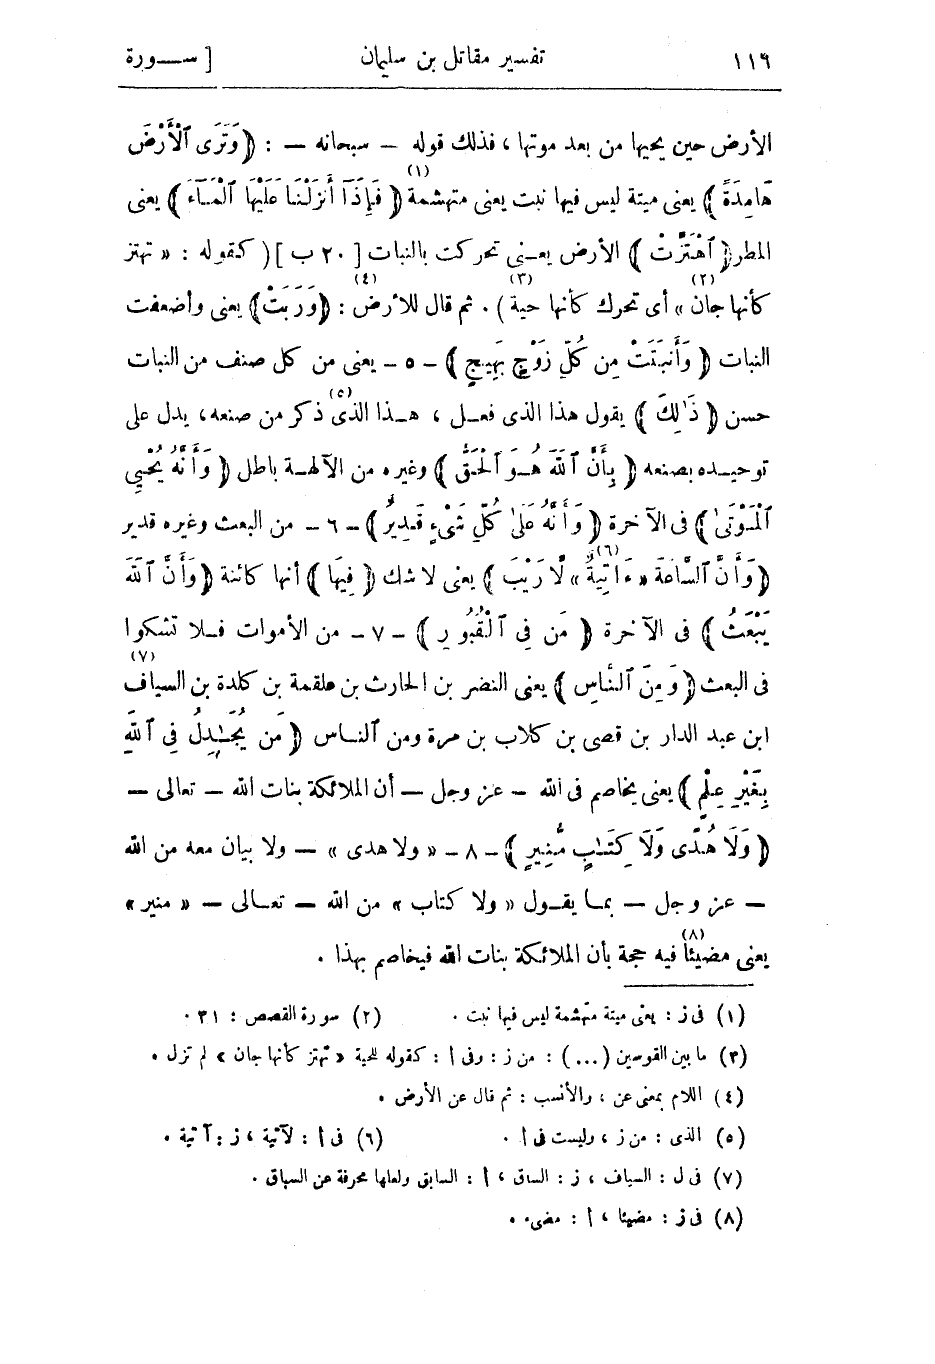 ١١٦ تفسير مقاتل بن سليمان [ ســورة
الأرض حين يحييها من بعد موتها ، فذلك قوله – سبحانه – : ﴿ وَتَرَى ٱلْأَرْضَ
هَامِدَةً ﴾ يعنى ميتة ليس فيها نبت يعنى متهشمة (١) ﴿ فَإِذَآ أَنزَلْنَا عَلَيْهَا ٱلْمَآءَ ﴾ يعنى
المطر ﴿ ٱهْتَزَّتْ ﴾ الأرض يعنى تحركت بالنبات [ ٢٠ ب ] ( كقوله : « تهتز
كأنها جان » (٢) أى تحرك كأنها حية ) (٣) . ثم قال للأرض (٤) : ﴿ وَرَبَتْ ﴾ يعنى وأضعفت
النبات ﴿ وَأَنبَتَتْ مِن كُلِّ زَوْجٍ بَهِيجٍ ﴾ – ٥ – يعنى من كل صنف من النبات
حسن ﴿ ذَٰلِكَ ﴾ يقول هذا الذى فعل ، هذا الذى (٥) ذكر من صنعه ، يدل على
توحيده بصنعه ﴿ بِأَنَّ ٱللَّهَ هُوَ ٱلْحَقُّ ﴾ وغيره من الآلهة باطل ﴿ وَأَنَّهُ يُحْيِي
ٱلْمَوْتَىٰ ﴾ فى الآخرة ﴿ وَأَنَّهُ عَلَىٰ كُلِّ شَىْءٍ قَدِيرٌ ﴾ – ٦ – من البعث وغيره قدير
﴿ وَأَنَّ ٱلسَّاعَةَ « ءَاتِيَةٌ » (٦) لَّا رَيْبَ ﴾ يعنى لا شك ﴿ فِيهَا ﴾ أنها كائنة ﴿ وَأَنَّ ٱللَّهَ
يَبْعَثُ ﴾ فى الآخرة ﴿ مَن فِى ٱلْقُبُورِ ﴾ – ٧ – من الأموات فلا تشكوا
فى البعث ﴿ وَمِنَ ٱلنَّاسِ ﴾ يعنى النضر بن الحارث بن علقمة بن كلدة بن السياف (٧)
ابن عبد الدار بن قصى بن كلاب بن مرة ومن ٱلناس ﴿ مَن يُجَٰدِلُ فِى ٱللَّهِ
بِغَيْرِ عِلْمٍ ﴾ يعنى يخاصم فى الله – عز وجل – أن الملائكة بنات الله – تعالى –
﴿ وَلَا هُدًى وَلَا كِتَٰبٍ مُّنِيرٍ ﴾ – ٨ – « ولا هدى » – ولا بيان معه من الله
– عز وجل – بما يقول « ولا كتاب » من الله – تعالى – « منير »
يعنى مضيئا (٨) فيه حجة بأن الملائكة بنات الله فيخاصم بهذا .
(١) فى ز : يعنى ميتة متهشمة ليس فيها نبت . (٢) سورة القصص : ٣١ .
(٣) ما بين القوسين ( ... ) : من ز : وفى أ : كقوله للحية « تهتز كأنها جان » لم تزل .
(٤) اللام بمعنى عن ، والأنسب : ثم قال عن الأرض .
(٥) الذى : من ز ، وليست فى أ . (٦) فى أ : لآتية ، ز : آتية .
(٧) فى ل : السياف ، ز : الساق ، أ : السابق ولعلها محرفة عن السباق .
(٨) فى ز : مضيئا ، أ : مضىء .